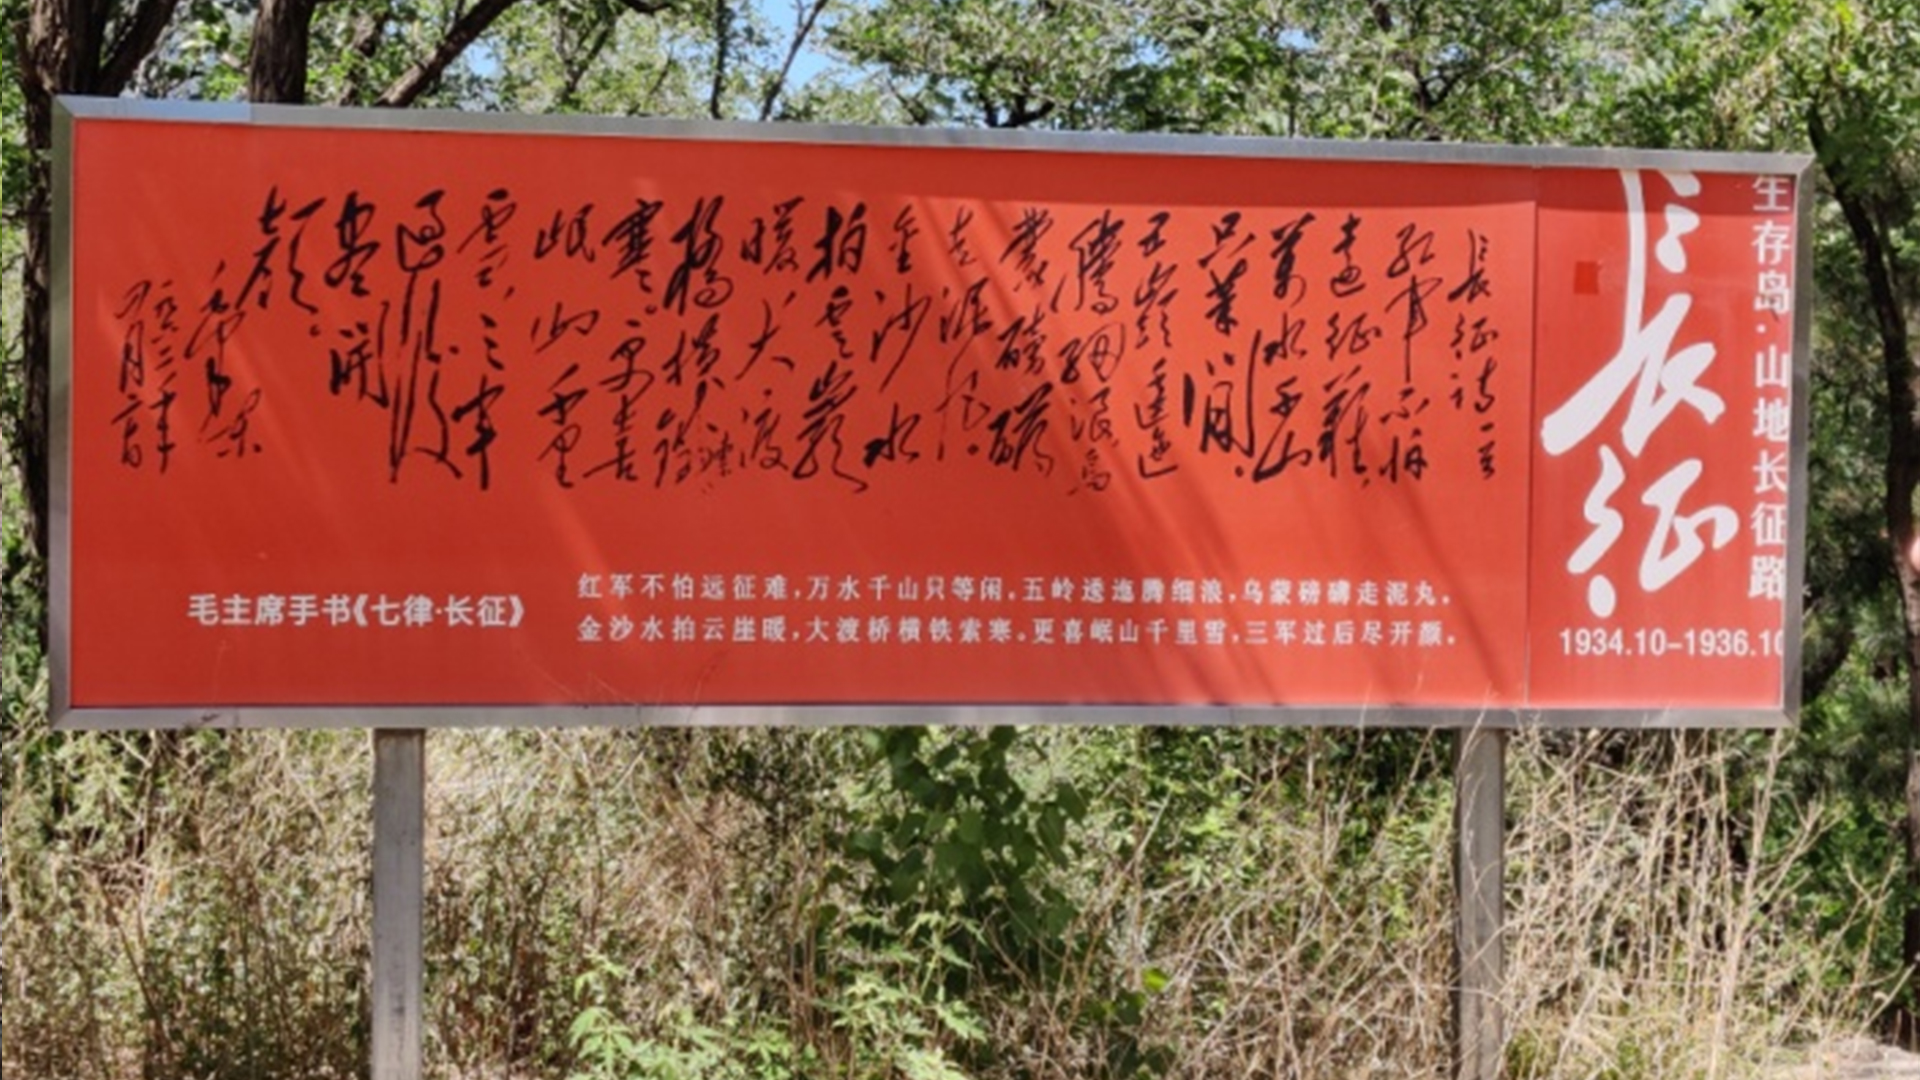 生存岛·山地长征路
长征
1934.10-1936.10
長征詩一首
紅軍不怕
遠征難,
萬水千山
只等閒。
五嶺逶迤
騰細浪烏
蒙磅礴
走泥丸。
金沙水
拍雲崖
暖大渡
橋橫鐵索
寒。更喜
岷山千里
雪,三軍
過後
盡開
顏。
毛澤東
毛主席手书《七律·长征》
红军不怕远征难,万水千山只等闲,五岭逶迤腾细浪,乌蒙磅礴走泥丸.
金沙水拍云崖暖,大渡桥横铁索寒。更喜岷山千里雪,三军过后尽开颜.